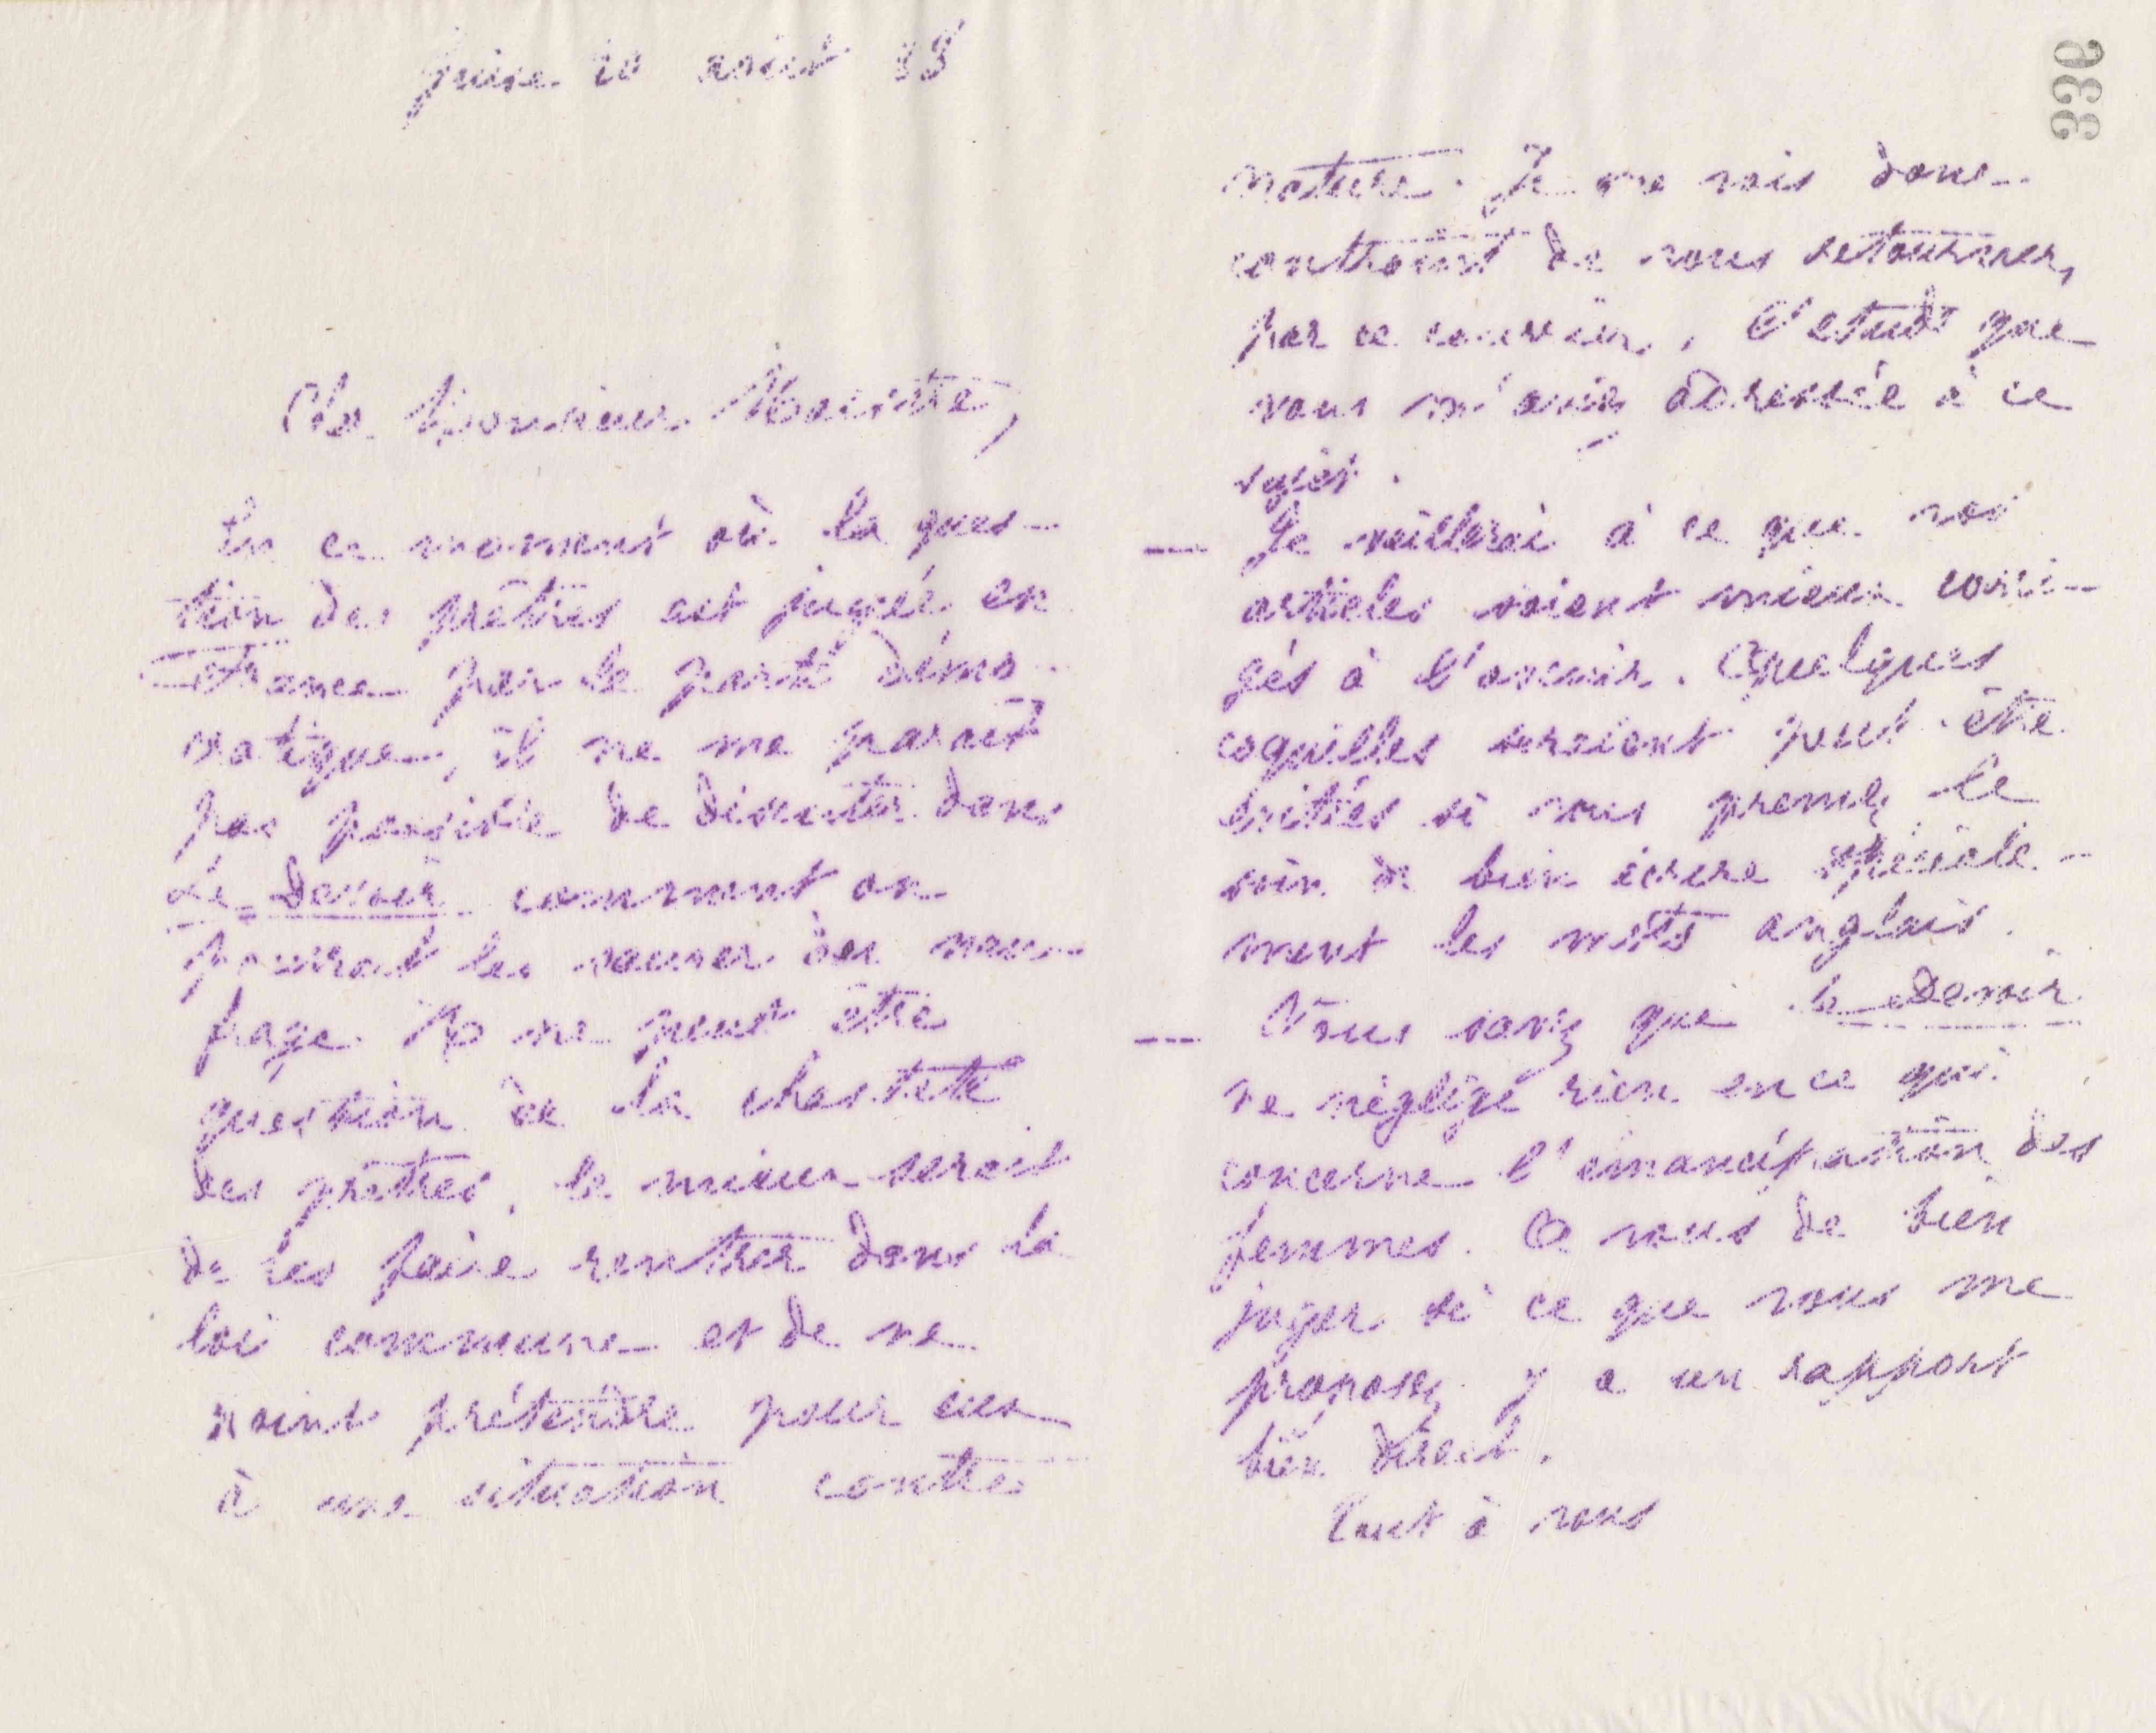 Guise 20 août 83
Cher Monsieur
En ce moment où la ques-
tion des prêtres est jugée en
France par le parti démo
cratique, il ne me paraît
pas possible de discuter dans
Le Devoir comment on
pourrait les sauver du nau-
frage. Il ne peut être
question de la chasteté
des prêtres, le mieux serait
de les faire rentrer dans la
loi commune et de ne
point prétendre pour eux
à une situation contre
nature. Je me vois donc
contraint de vous retourner,
par ce courrier, l'étude que
vous m'avez adressée à ce
sujet.
— Je veillerai à ce que vos
articles soient mieux corri-
gés à l'avenir. Quelques
coquilles seraient peut-être
évitées si vous preniez le
soin de bien écrire spéciale-
ment les mots anglais.
— Vous savez que le Devoir
ne néglige rien en ce qui
concerne l'émancipation des
femmes. A vous de bien
juger si ce que vous me
proposez y a un rapport
bien direct.
Tout à vous
336